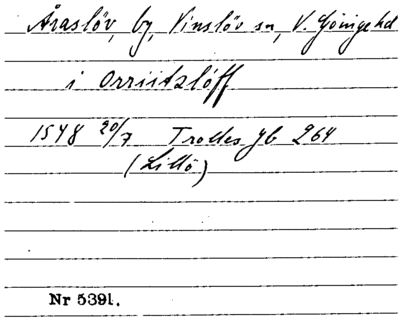 Åraslöv, by, Vinslöv sn, V. Göingehd
i Orriitzlöff
1548 20/7 Trolles Jb 264
(Lillö)
Nr 5391.